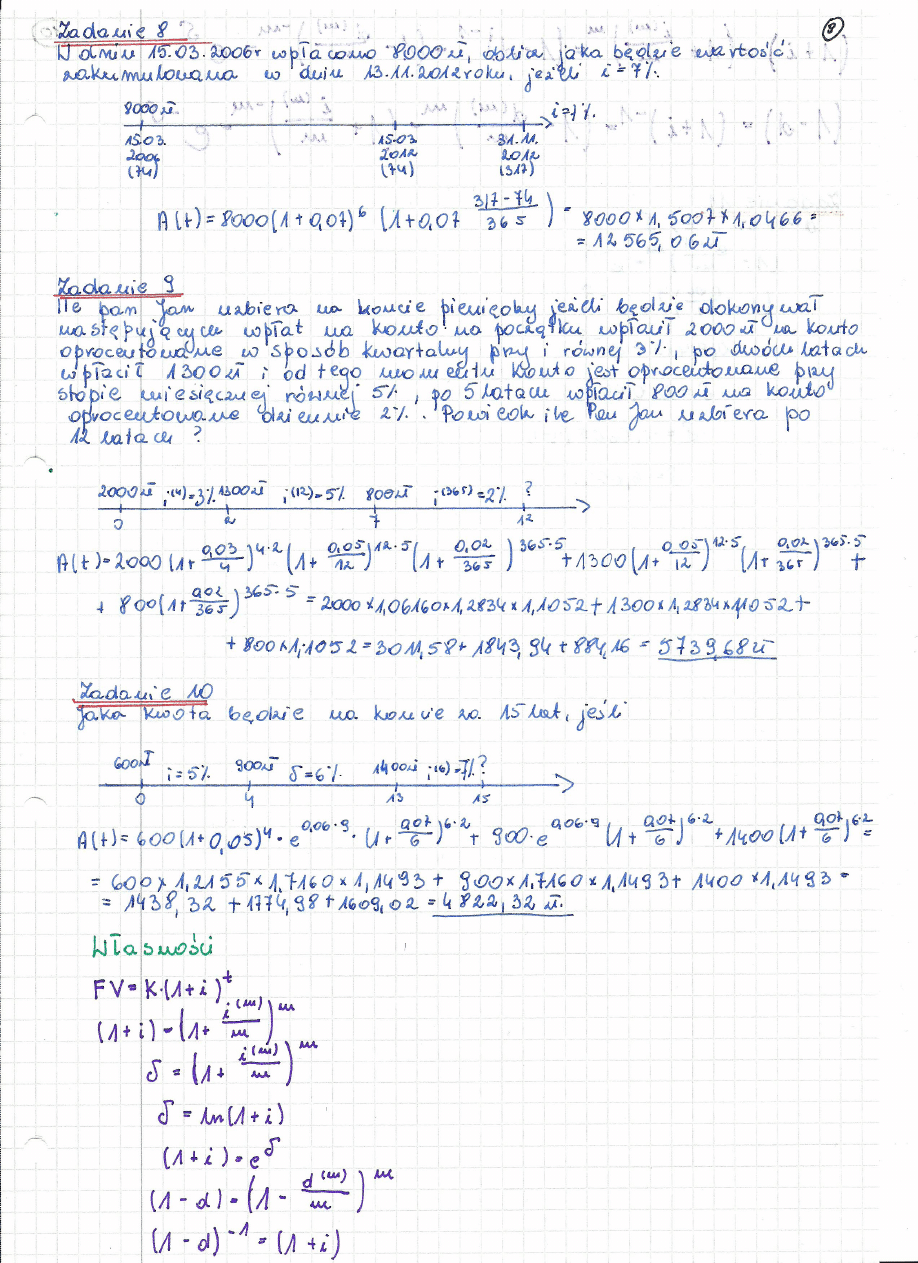 8
Zadanie 8
W dniu 15.03.2006r wpłacono 8000zł, oblicz jaka będzie wartość
zakumulowana w dniu 13.11.2012roku, jeżeli i=7%.
8000zł i=7%.
15.03. 15.03. 31.11.
2006 2012 2012
(74) (74) (317)
A(t)=8000(1+0,07)^6 (1+0,07 (317-74)/365) = 8000×1,5007×1,0466=
=12565,06zł
Zadanie 9
Ile pan Jan uzbiera na koncie pieniędzy jeżeli będzie dokonywał
następujących wpłat na konto na początku wpłacił 2000zł na konto
oprocentowane w sposób kwartalny przy i równej 3%, po dwóch latach
wpłacił 1300zł i od tego momentu konto jest oprocentowane przy
stopie miesięcznej równej 5%, po 5 latach wpłacił 800zł na konto
oprocentowane dziennie 2%. Powiedz ile Pan Jan uzbiera po
12 latach?
2000zł i^(4)=3% 1300zł i^(12)=5% 800zł i^(365)=2% ?
0 2 7 12
A(t)=2000(1+0,03/4)^4·2 (1+0,05/12)^12·5 (1+0,02/365)^365·5 +1300(1+0,05/12)^12·5 (1+0,02/365)^365·5 +
+ 800(1+0,02/365)^365·5 =2000×1,06160×1,2834×1,1052+1300×1,2834×1,1052+
+800×1,1052=3011,58+1843,94+884,16=5739,68zł
Zadanie 10
Jaka kwota będzie na koncie za 15 lat, jeśli
600zł i=5% 900zł δ=6% 1400zł i^(6)=7% ?
0 4 13 15
A(t)=600(1+0,05)^4·e^0,06·9·(1+0,07/6)^6·2+900·e^0,06·9 (1+0,07/6)^6·2+1400(1+0,07/6)^6·2=
=600×1,2155×1,7160×1,1493+900×1,7160×1,1493+1400×1,1493=
=1438,32+1774,98+1609,02=4822,32zł.
Własności
FV=K·(1+i)^t
(1+i)=(1+i^(m)/m)^m
δ=(1+i^(m)/m)^m
δ=ln(1+i)
(1+i)=e^δ
(1-d)=(1-d^(m)/m)^m
(1-d)^-1=(1+i)